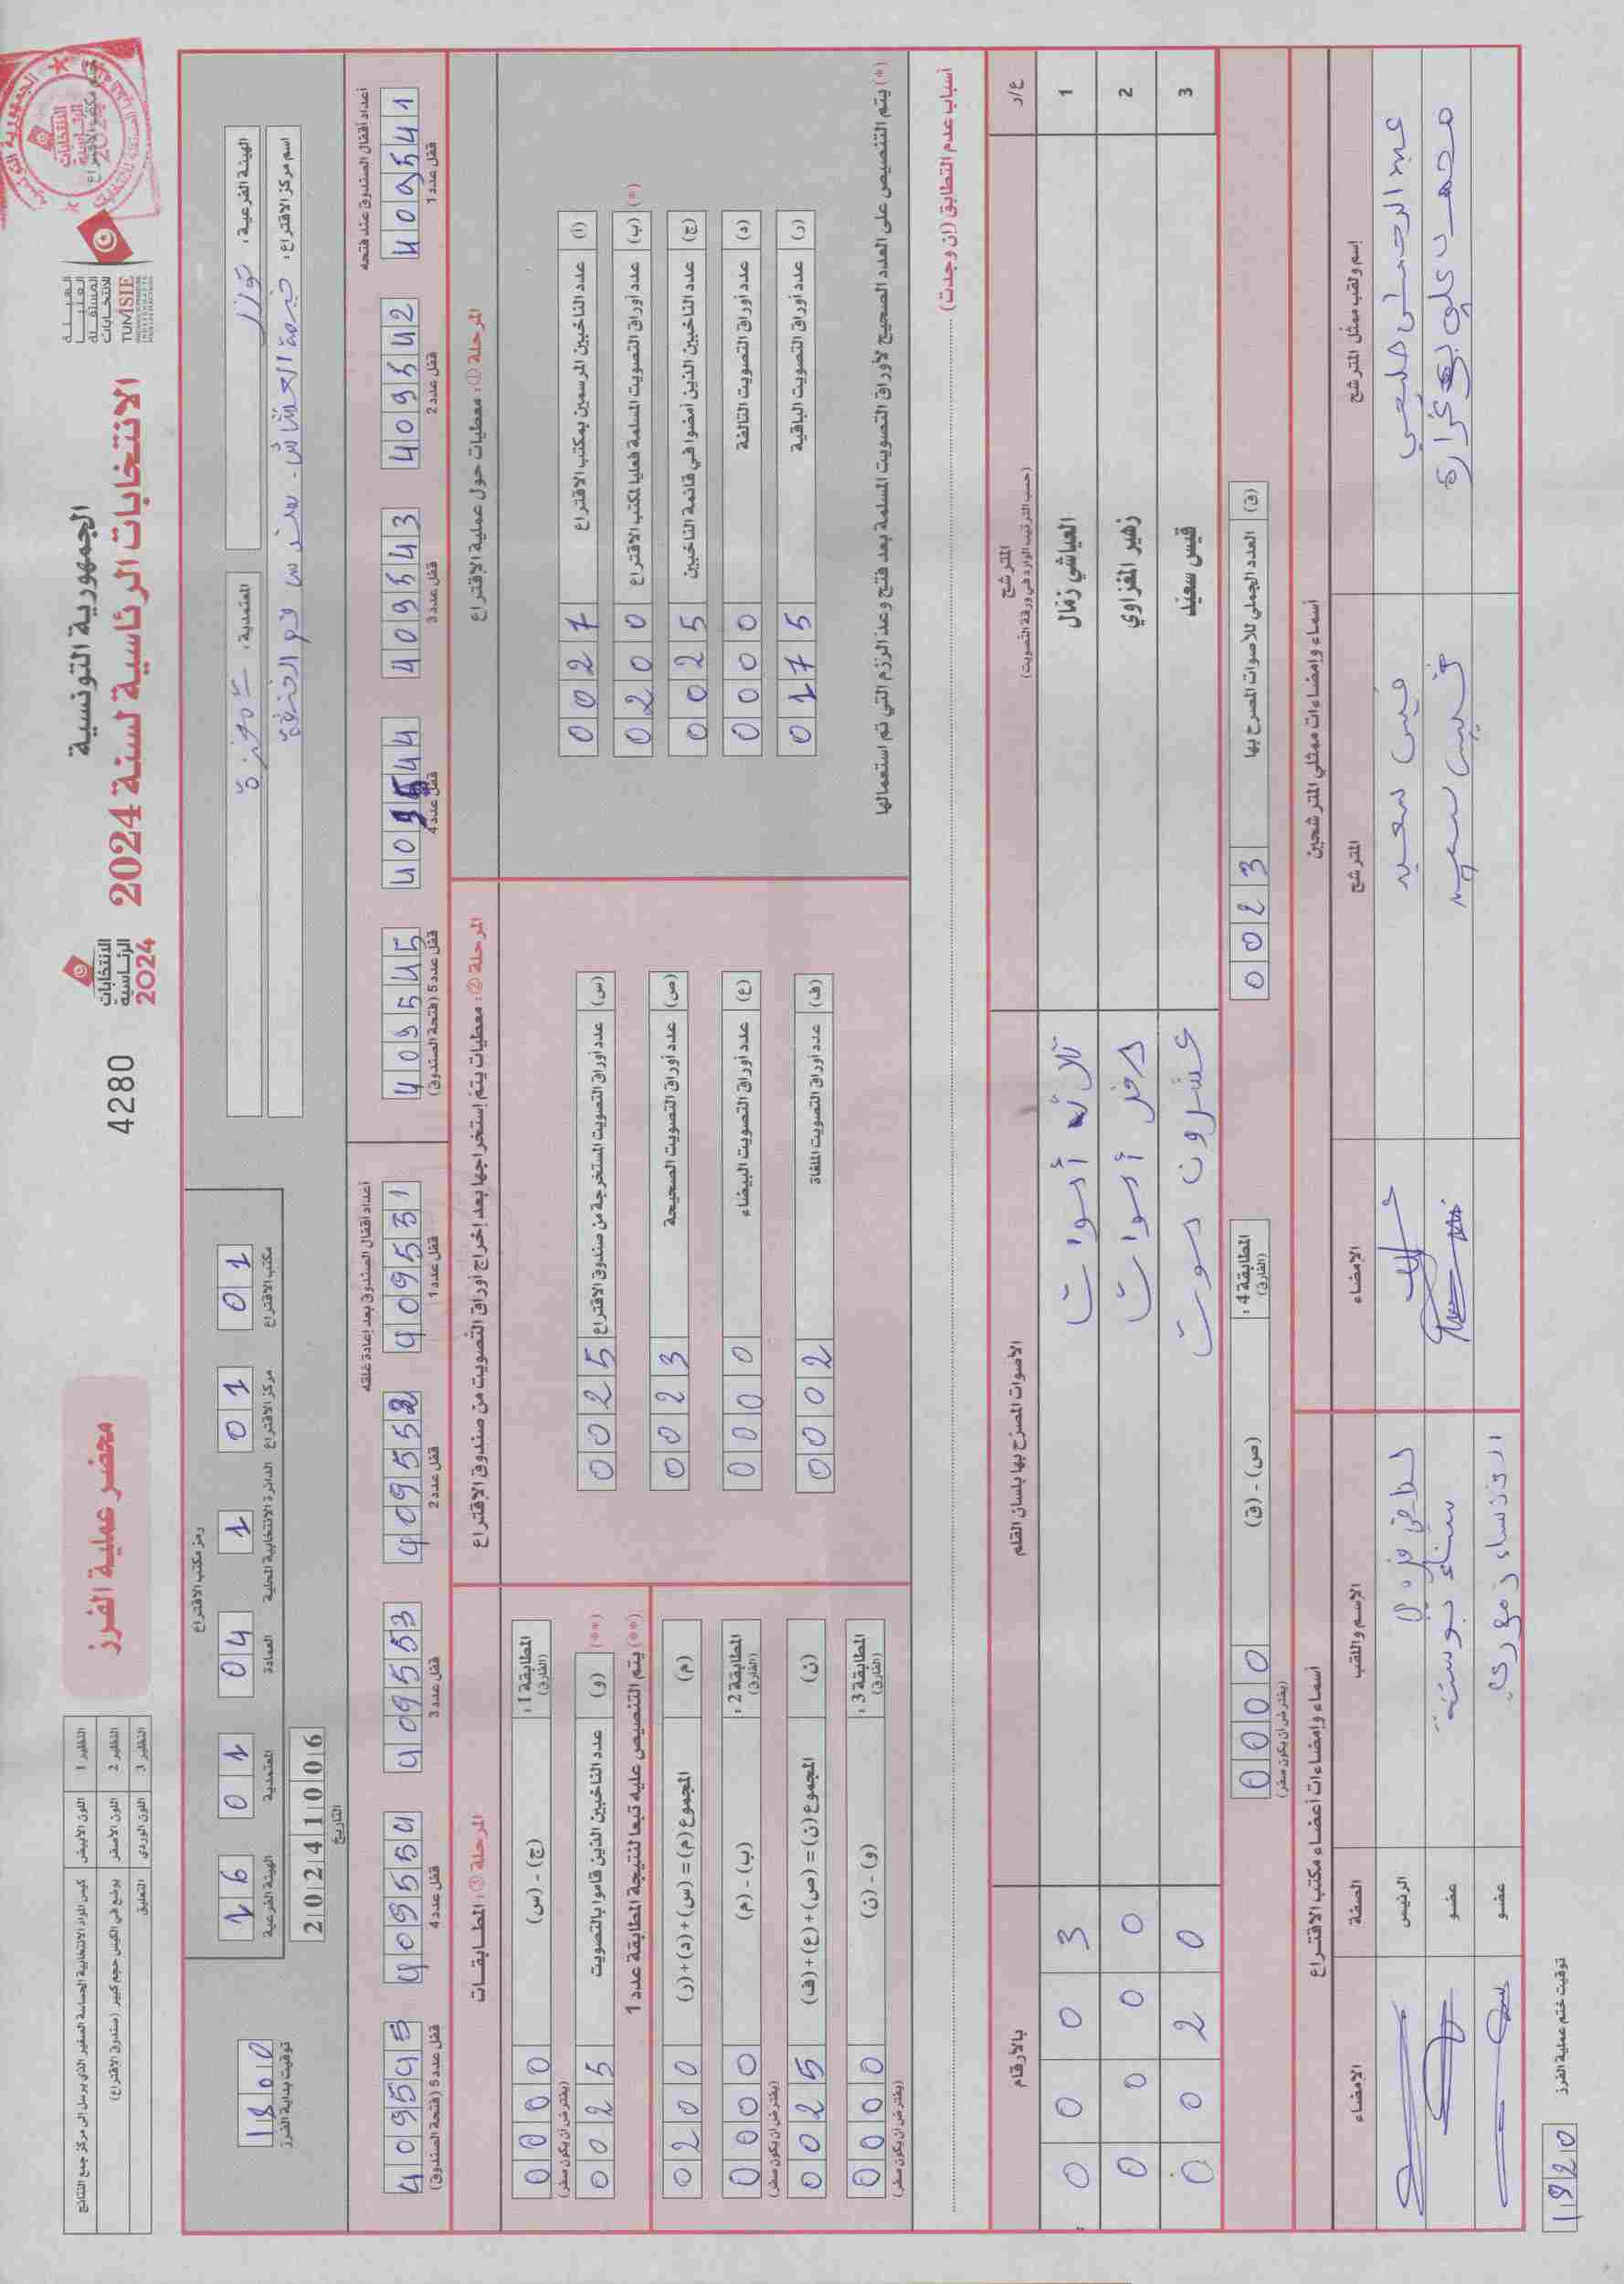 الجمهورية التونسية
الانتخابات الرئاسية لسنة 2024
الهيئة
العليا
المستقلة
للانتخابات
TUNISIE
ختم مكتب الاقتراع
الانتخابات
الرئاسية
2024
4280
محضر عملية الفرز
النظير 1 اللون الأبيض كيس المواد الانتخابية الحساسة الصغير الذي يرسل إلى مركز جمع النتائج
النظير 2 اللون الأصفر يوضع في الكيس حجم كبير (صندوق الاقتراع)
النظير 3 اللون الوردي التعليق
الهيئة الفرعية: توزر
المعتمدية: تمغزة
اسم مركز الاقتراع:
رمز مكتب الاقتراع
مكتب الاقتراع 01
مركز الاقتراع 01
الدائرة الانتخابية المحلية 1
العمادة 04
المعتمدية 01
الهيئة الفرعية 16
20241006
التاريخ
توقيت بداية الفرز 1800
أعداد أقفال الصندوق عند فتحه
409541 قفل عدد 1
409542 قفل عدد 2
409543 قفل عدد 3
409544 قفل عدد 4
409545 قفل عدد 5 (فتحة الصندوق)
أعداد أقفال الصندوق بعد إعادة غلقه
409551 قفل عدد 1
409552 قفل عدد 2
409553 قفل عدد 3
409554 قفل عدد 4
409545 قفل عدد 5 (فتحة الصندوق)
المرحلة ①: معطيات حول عملية الاقتراع
(أ) عدد الناخبين المرسمين بمكتب الاقتراع 0027
(*) (ب) عدد أوراق التصويت المسلمة فعليا لمكتب الاقتراع 0200
(ج) عدد الناخبين الذين أمضوا في قائمة الناخبين 0025
(د) عدد أوراق التصويت التالفة 0000
(ر) عدد أوراق التصويت الباقية 0175
(*) يتم التنصيص على العدد الصحيح لأوراق التصويت المسلمة بعد فتح وعد الرزم التي تم استعمالها
المرحلة ②: معطيات يتم إستخراجها بعد إخراج أوراق التصويت من صندوق الاقتراع
(س) عدد أوراق التصويت المستخرجة من صندوق الاقتراع 0025
(ص) عدد أوراق التصويت الصحيحة 0023
(ع) عدد أوراق التصويت البيضاء 0000
(ف) عدد أوراق التصويت الملغاة 0002
المرحلة ③: المطابقات
المطابقة 1: (الفارق) (ج) - (س) 0000
(يفترض أن يكون صفر)
(**) (و) عدد الناخبين الذين قاموا بالتصويت 0025
(**) يتم التنصيص عليه تبعا لنتيجة المطابقة عدد 1
(م) المجموع (م) = (س)+(د)+(ر) 0200
المطابقة 2: (الفارق) (ب) - (م) 0000
(يفترض أن يكون صفر)
(ن) المجموع (ن) = (ص)+(ع)+(ف) 0025
المطابقة 3: (الفارق) (و) - (ن) 0000
(يفترض أن يكون صفر)
أسباب عدم التطابق (إن وجدت)
ع/ر المترشح (حسب الترتيب الوارد في ورقة التصويت) الأصوات المصرح بها بلسان القلم بالأرقام
1 العياشي زمال ثلاثة أصوات 0003
2 زهير المغزاوي صفر أصوات 0000
3 قيس سعيد عشرون صوت 0020
(ق) العدد الجملي للأصوات المصرح بها 0023
المطابقة 4: (الفارق) (ص) - (ق) 0000
(يفترض أن يكون صفر)
أسماء وإمضاءات ممثلي المترشحين
إسم ولقب ممثل المترشح المترشح الامضاء
قيس سعيد
قيس سعيد
أسماء وإمضاءات أعضاء مكتب الاقتراع
الاسم واللقب الصفة الامضاء
الرئيس
عضو
عضو
توقيت ختم عملية الفرز 1920